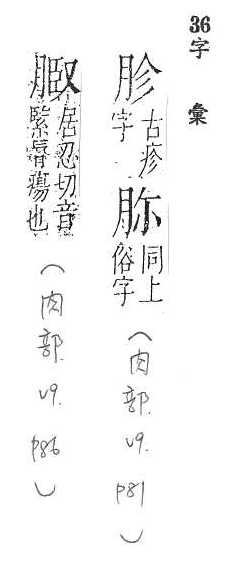 36
字彙
胗 古疹字 同上俗字 (肉部. v9. p81)
居忍切音緊脣瘍也 (肉部. v9. p86)